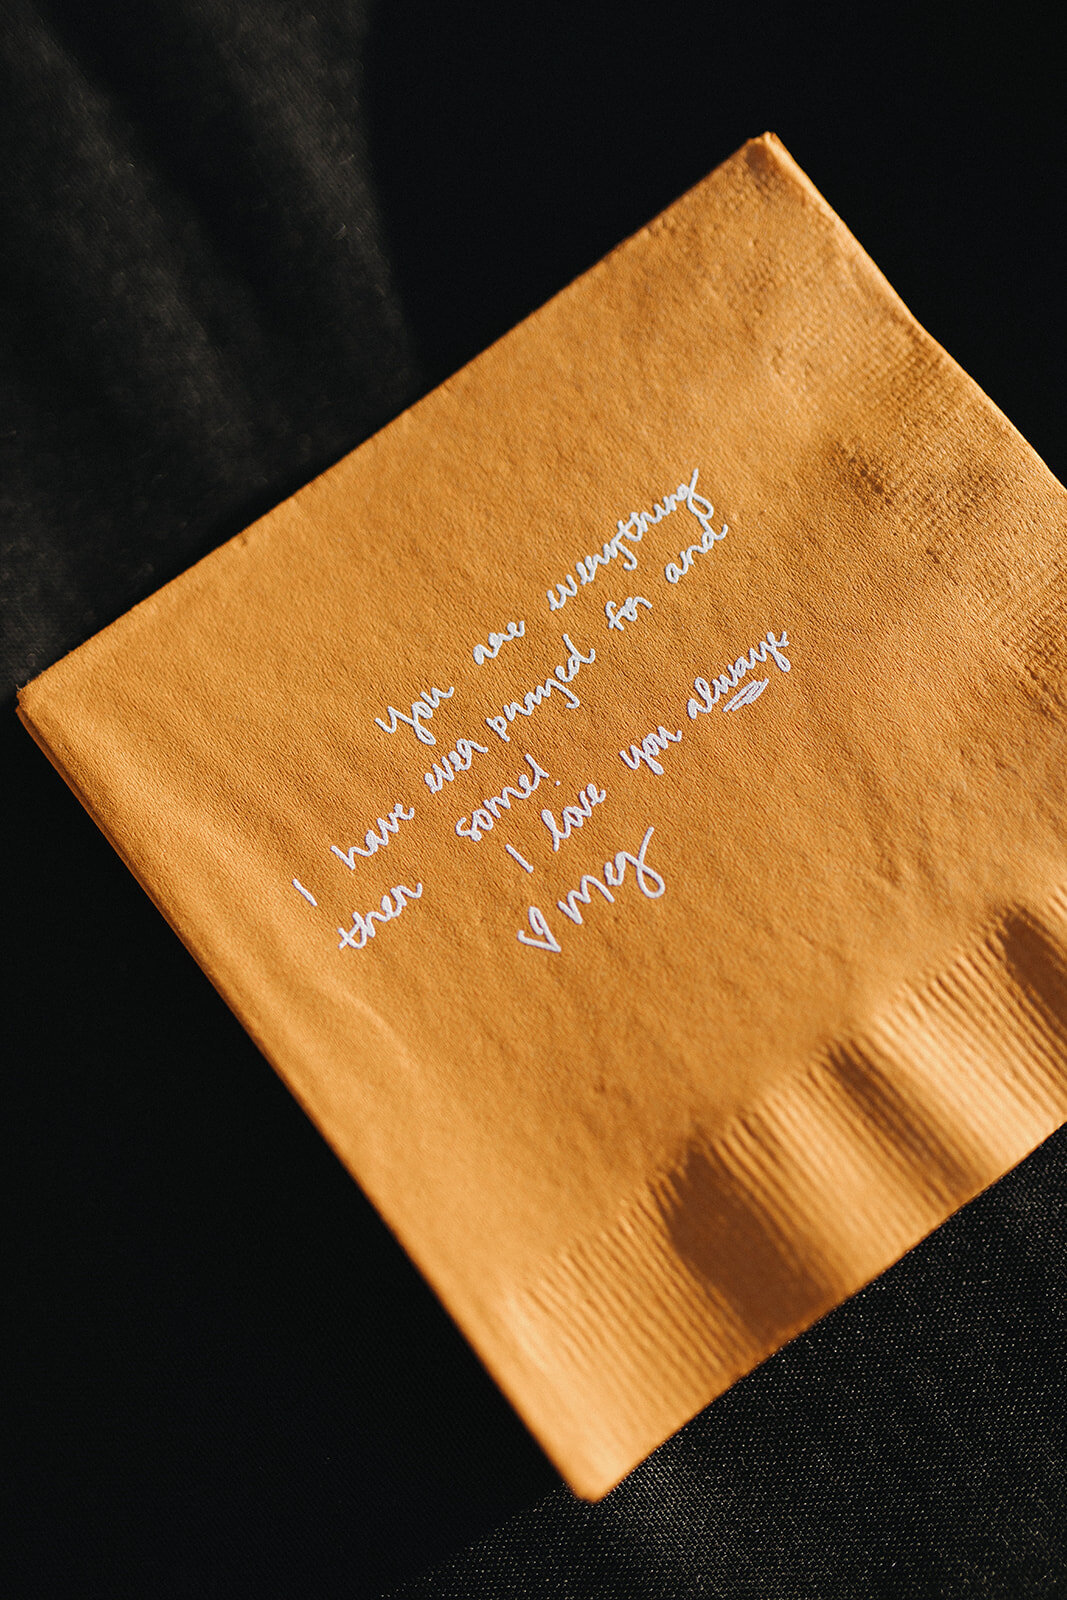 you are everything
I have ever prayed for and
then some!
I love you always
♡ Meg